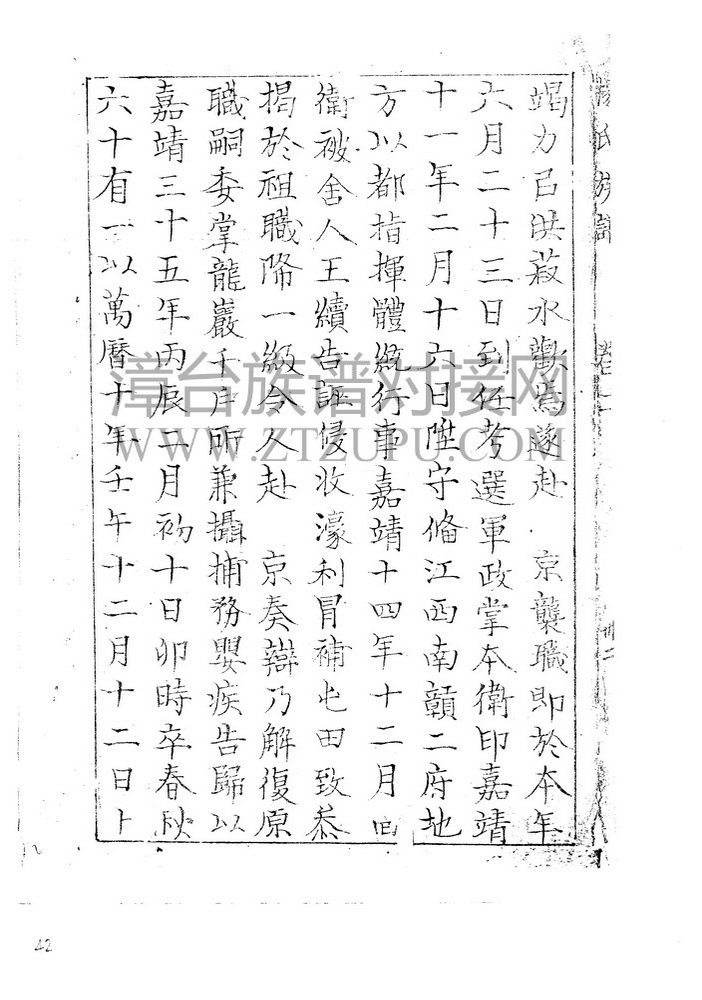 氏族譜
竭力已洪菽水歡焉遂赴 京襲職即於本年
六月二十三日到任考選軍政掌本衛印嘉靖
十一年二月十六日陞守俻江西南贛二府地
方以都指揮體統行事嘉靖十四年十二月回
衛被舍人王續告誣侵收濠利冒補屯田致叅
揭於祖職降一級令人赴 京奏辯乃解復原
職嗣委掌龍巖千戶所兼攝捕務嬰疾告歸以
嘉靖三十五年丙辰二月初十日卯時卒春秋
六十有一以萬曆十年壬午十二月十二日卜
漳台族谱对接网
WWW.ZTZUPU.COM
42